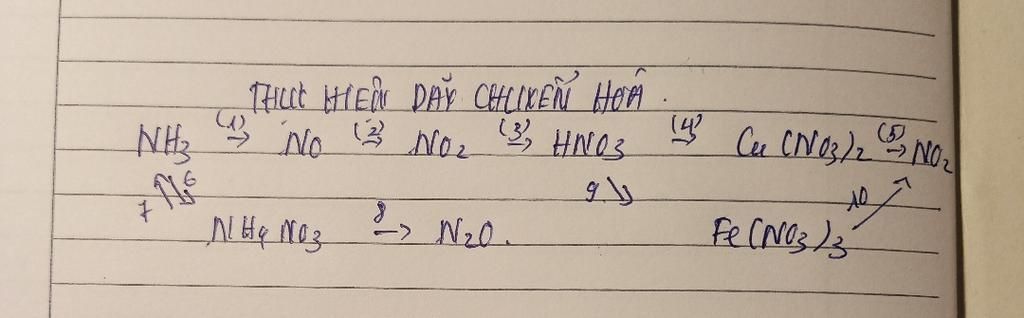 THỰC HIỆN DÃY CHUYỂN HOÁ.
NH3 (1)→ NO (2)→ NO2 (3)→ HNO3 (4)→ Cu(NO3)2 (5)→ NO2
7 6 9 10
NH4NO3 8→ N2O. Fe(NO3)3